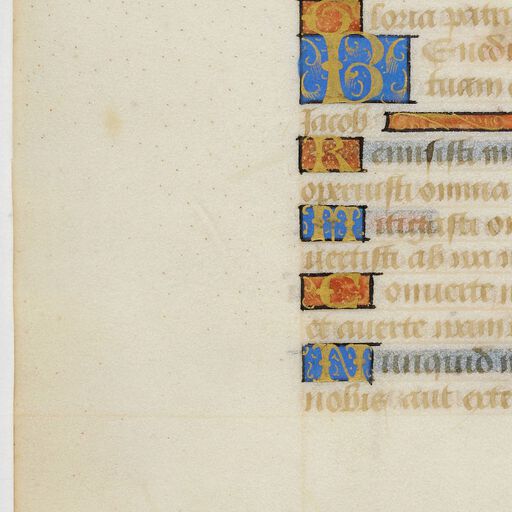 soria patri
Benedi
tuam
Jacob
Remisisti
operuisti omnia
Mitigasti
uertisti ab ira
Conuerte
et auerte iram
Nunquid
nobis aut exte